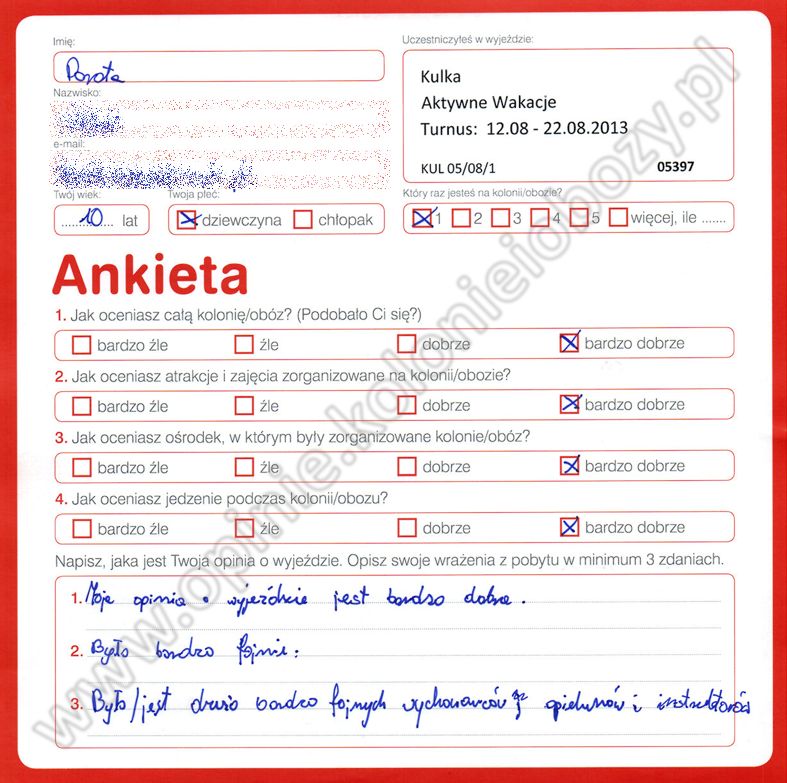 Imię:
Dorota
Nazwisko:
e-mail:
Twój wiek:
10 lat
Twoja płeć:
dziewczyna chłopak
Uczestniczyłeś w wyjeździe:
Kulka
Aktywne Wakacje
Turnus: 12.08 - 22.08.2013
KUL 05/08/1 05397
Który raz jesteś na kolonii/obozie?
1 2 3 4 5 więcej, ile .......
Ankieta
1. Jak oceniasz całą kolonię/obóz? (Podobało Ci się?)
bardzo źle źle dobrze bardzo dobrze
2. Jak oceniasz atrakcje i zajęcia zorganizowane na kolonii/obozie?
bardzo źle źle dobrze bardzo dobrze
3. Jak oceniasz ośrodek, w którym były zorganizowane kolonie/obóz?
bardzo źle źle dobrze bardzo dobrze
4. Jak oceniasz jedzenie podczas kolonii/obozu?
bardzo źle źle dobrze bardzo dobrze
Napisz, jaka jest Twoja opinia o wyjeździe. Opisz swoje wrażenia z pobytu w minimum 3 zdaniach.
1. Moja opinia o wyjeździe jest bardzo dobra.
2. Było bardzo fajnie.
3. Było/jest dużo bardzo fajnych wychowawców opiekunów i instruktorów
www.opinie.kolonieiobozy.pl